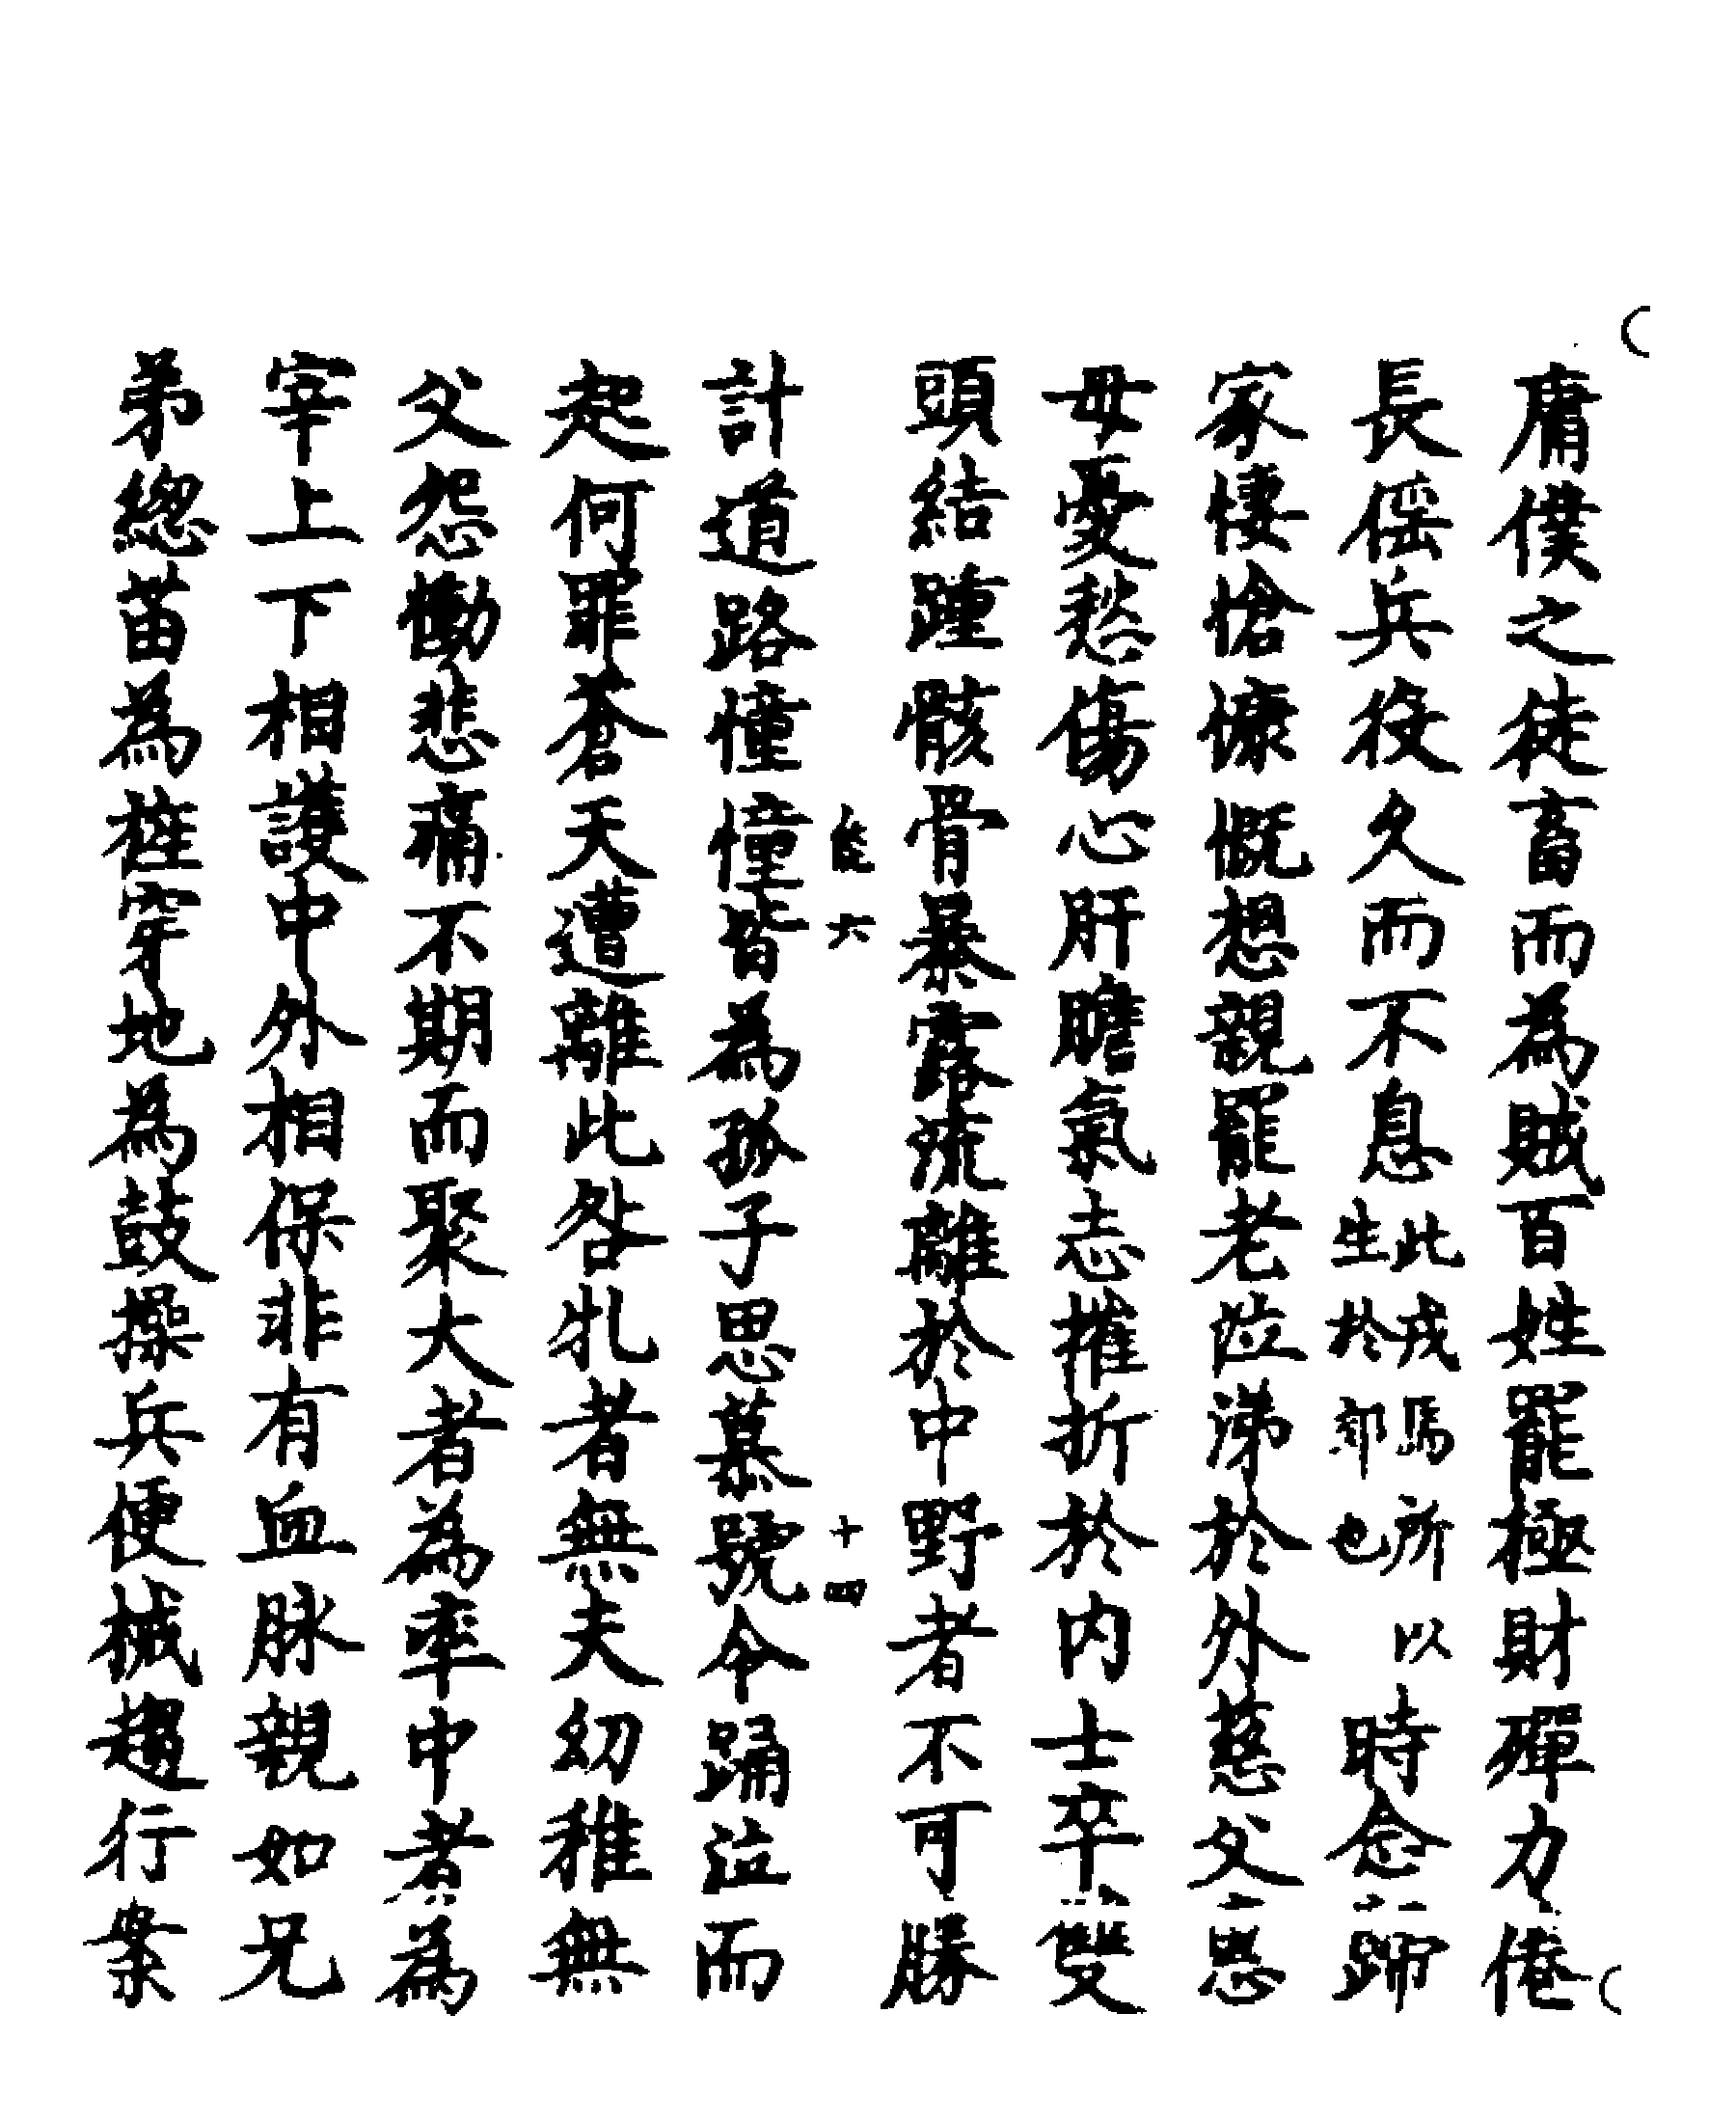 庸僕之徒畜而為賊百姓罷極財殫力倦
長徭兵役久而不息此戎馬所以生於郊也時念歸
家悽愴慷慨想親罷老泣涕於外慈父惠
母憂愁傷心肝膽氣志摧折於内士卒雙
頭結踵骸骨暴露流離於中野者不可勝
能六 十四
計道路憧憧皆為孤子思慕號令踊泣而
起何罪蒼天遭離此咎札者無夫幼稚無
父怨慟悲痛不期而聚大者為率中者為
宰上下相護中外相保非有血脉親如兄
弟總苗為旌穿地為鼓操兵便械趨行案